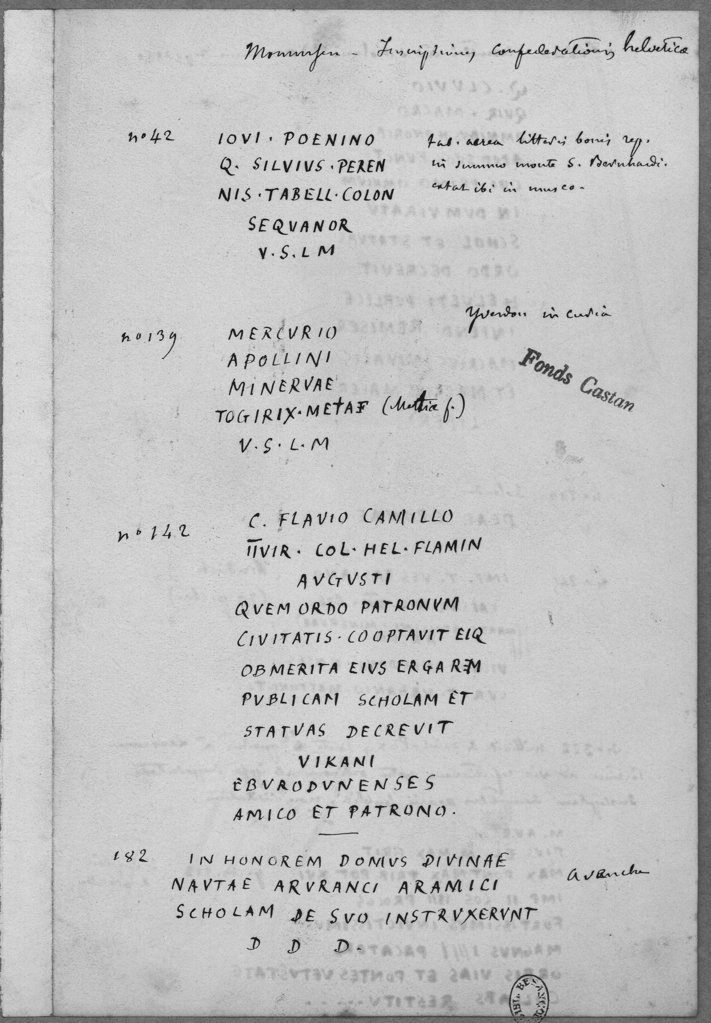 Mommsen - Inscriptiones confederationis helveticae
n° 42 IOVI · POENINO tab. aerea litteris bonis rep.
Q. SILVIUS · PEREN in summo monte S. Bernhardi.
NIS · TABELL · COLON extat ibi in museo.
SEQUANOR
V. S. L M
Yverdon in curia
n° 139 MERCVRIO
APOLLINI
Fonds Castan
MINERVAE
TOGIRIX · METIAE (Mettiae f.)
V. S. L. M
n° 142 C. FLAVIO CAMILLO
IIVIR · COL · HEL · FLAMIN
AVGVSTI
QUEM ORDO PATRONVM
CIVITATIS · COOPTAVIT EIQ
OB MERITA EIUS ERGA REM
PVBLICAM SCHOLAM ET
STATVAS DECREVIT
VIKANI
EBVRODVNENSES
AMICO ET PATRONO.
182 IN HONOREM DOMUS DIVINAE
Avenche
NAVTAE ARVRANCI ARAMICI
SCHOLAM DE SVO INSTRVXERVNT
D D D
BIBL. BESANÇON